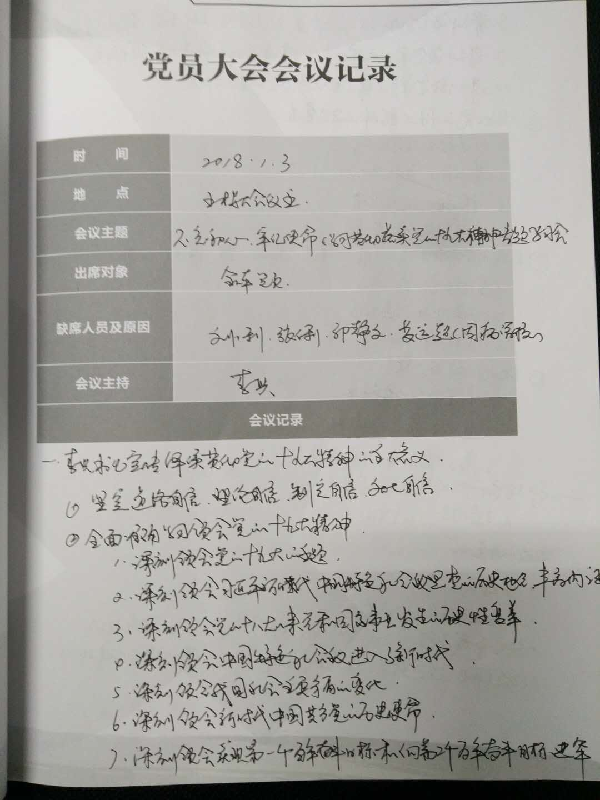 党员大会会议记录
时 间 2018.1.3
地 点 大会议室
会议主题 不忘初心、牢记使命
出席对象 全体党员
缺席人员及原因
会议主持 李
会议记录
一、李 书记宣传 党的十九大精神的 意义.
① 坚定道路自信、理论自信、制度自信、文化自信.
② 全面 领会党的十九大精神
1. 深刻领会党的十九大的主题
2. 深刻领会习近平新时代中国特色社会主义思想的历史地位、丰富内涵
3. 深刻领会党的十八大以来党和国家事业发生的历史性变革.
4. 深刻领会中国特色社会主义进入了新时代
5. 深刻领会我国社会主要矛盾的变化
6. 深刻领会新时代中国共产党的历史使命
7. 深刻领会实现第一个百年奋斗目标和向第二个百年奋斗目标进军